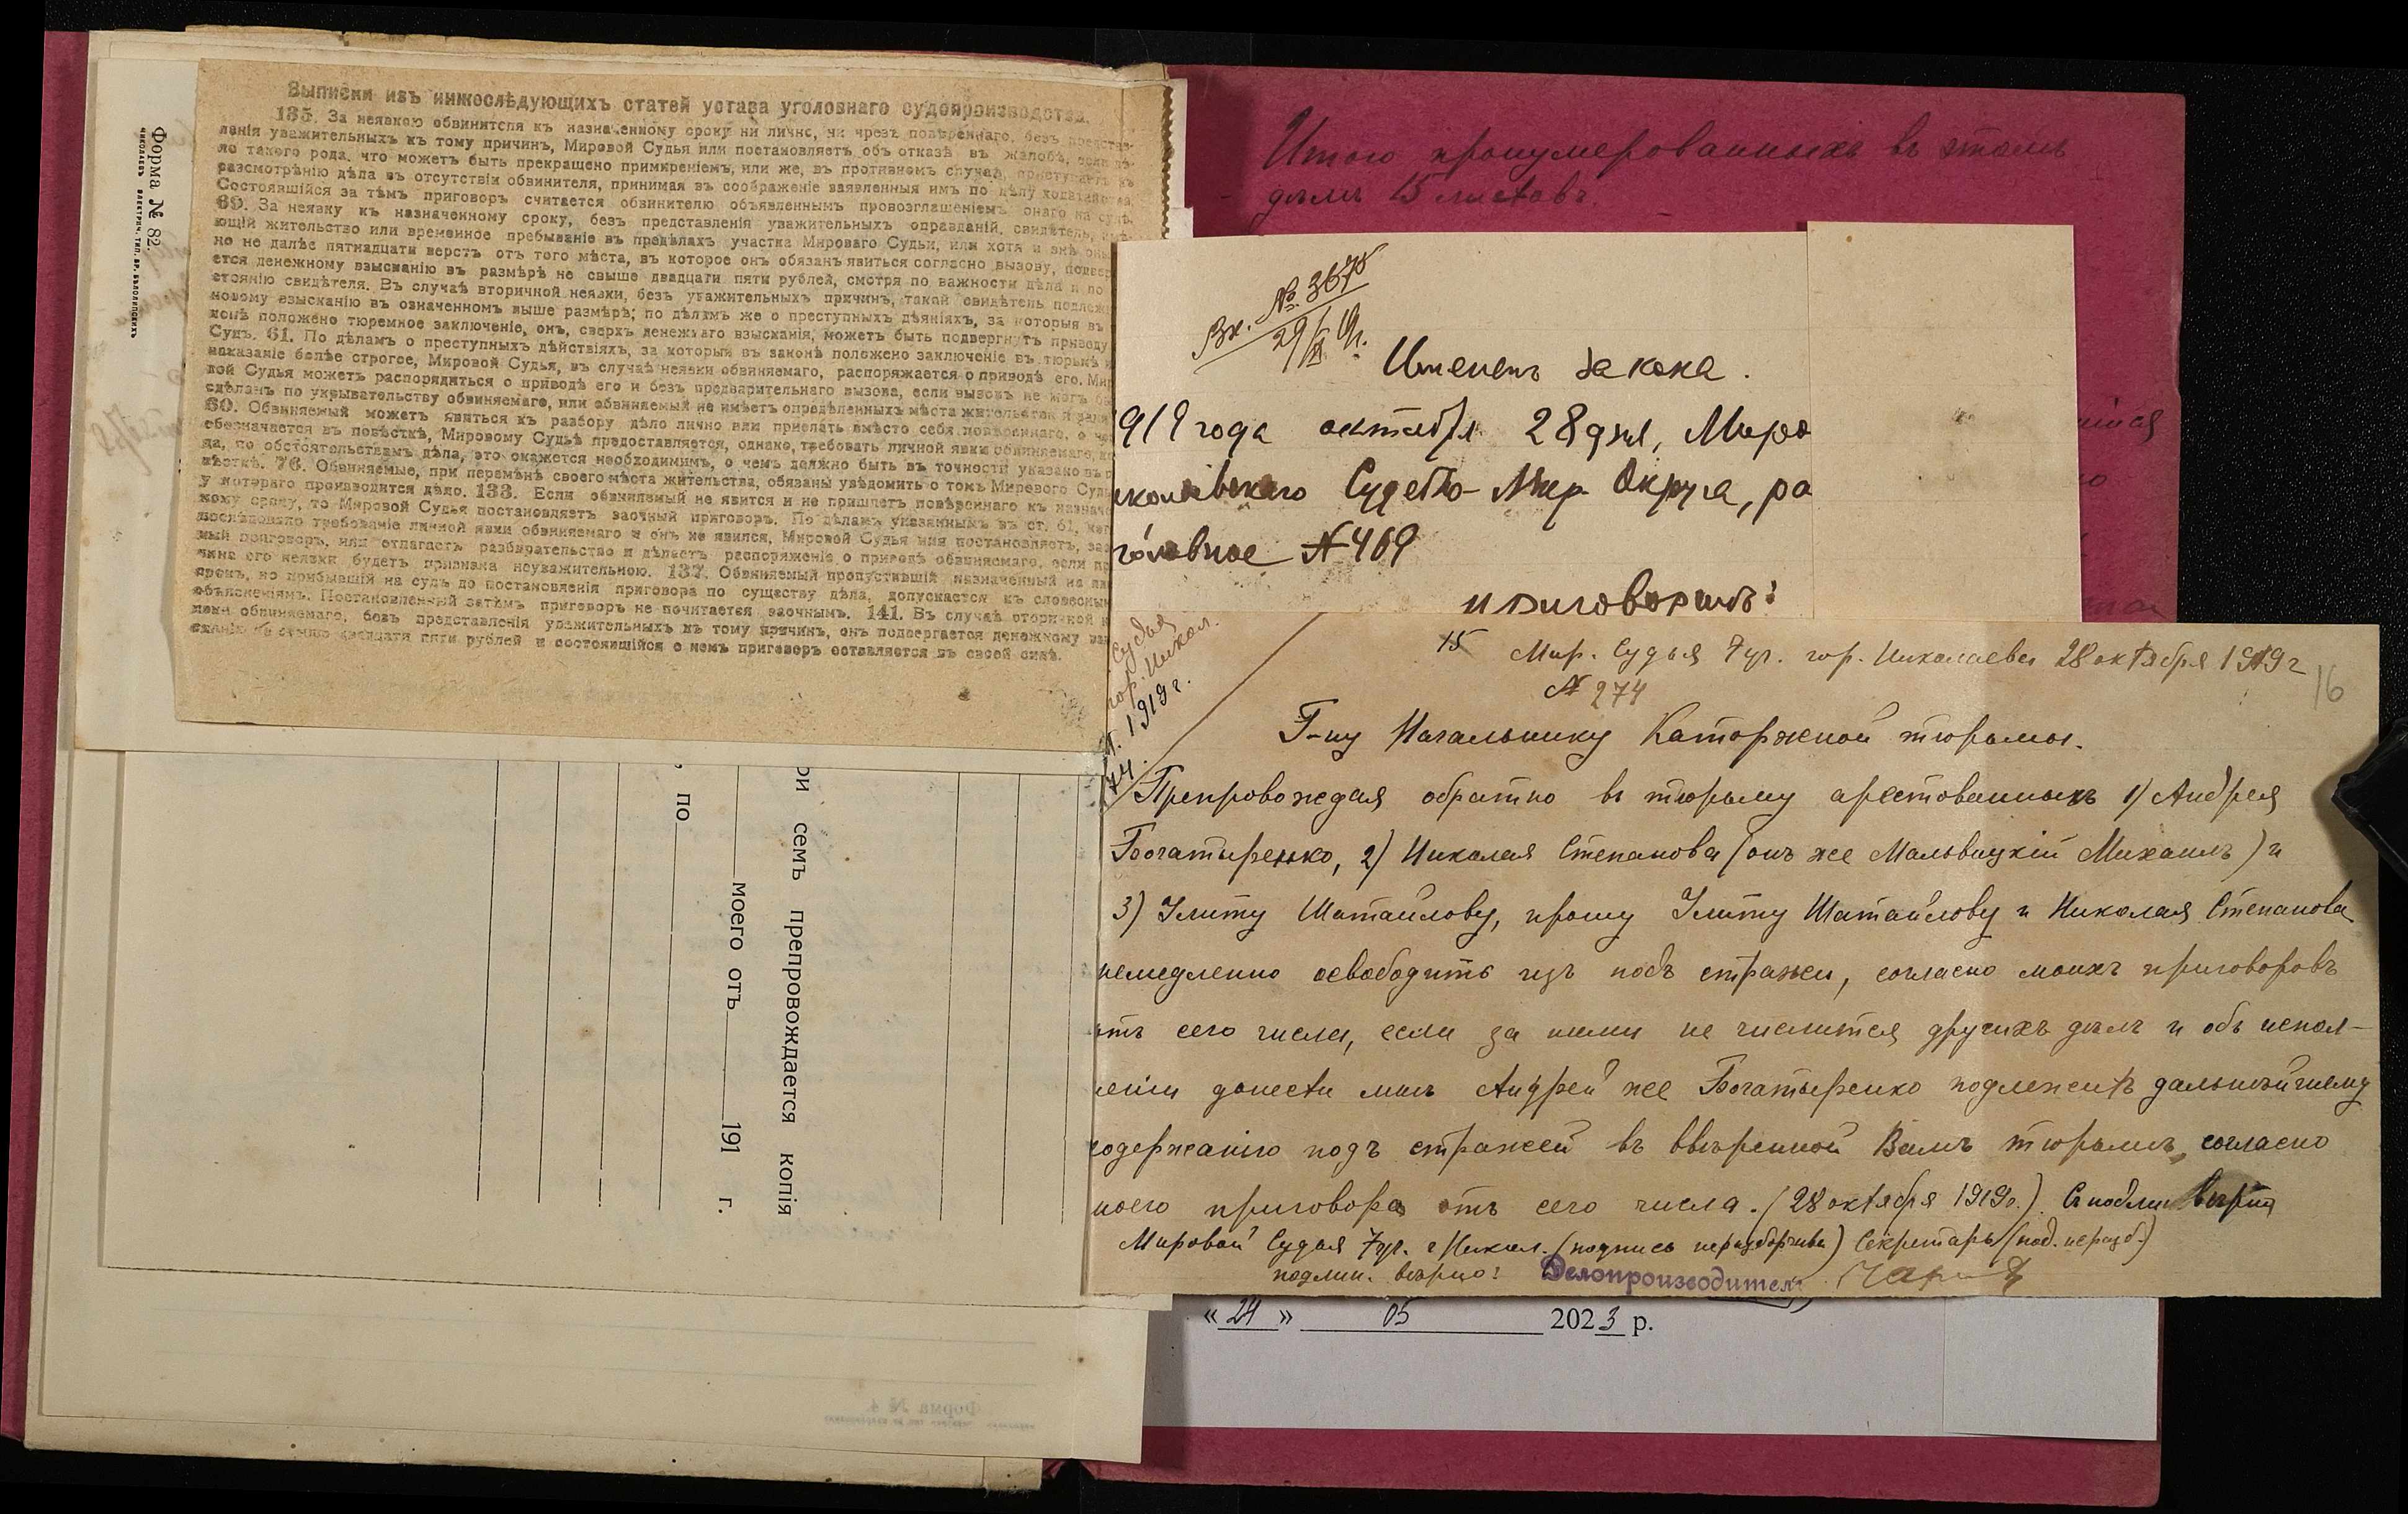 Форма № 82.
Выписки изъ нижеслѣдующихъ статей устава уголовнаго судопроизводства.
135. За неявкою обвинителя къ назначенному сроку ни лично, ни чрезъ повѣреннаго, безъ представ-
ленія уважительныхъ къ тому причинъ, Мировой Судья или постановляетъ объ отказѣ въ жалобѣ, если дѣ-
ло такого рода, что можетъ быть прекращено примиреніемъ, или же, въ противномъ случаѣ, приступаетъ къ
разсмотрѣнію дѣла въ отсутствіи обвинителя, принимая въ соображеніе заявленныя имъ по дѣлу ходатайства.
Состоявшійся за тѣмъ приговоръ считается обвинителю объявленнымъ провозглашеніемъ онаго на судѣ.
69. За неявку къ назначенному сроку, безъ представленія уважительныхъ оправданій, свидѣтель,
ющій жительство или временное пребываніе въ предѣлахъ участка Мироваго Судьи, или хотя и внѣ
но не далѣе пятнадцати верстъ отъ того мѣста, въ которое онъ обязанъ явиться согласно вызову, подвер
ется денежному взысканію въ размѣрѣ не свыше двадцати пяти рублей, смотря по важности дѣла и по
стоянію свидѣтеля. Въ случаѣ вторичной неявки, безъ уважительныхъ причинъ, такой свидѣтель подлежи
новому взысканію въ означенномъ выше размѣрѣ; по дѣламъ же о преступныхъ дѣяніяхъ, за которыя въ
конѣ положено тюремное заключеніе, онъ, сверхъ денежнаго взысканія, можетъ быть подвергнутъ приводу
Судъ. 61. По дѣламъ о преступныхъ дѣйствіяхъ, за который въ законѣ положено заключеніе въ тюрьмѣ
наказаніе болѣе строгое, Мировой Судья, въ случаѣ неявки обвиняемаго, распоряжается о приводѣ его. Ми
вой Судья можетъ распорядиться о приводѣ его и безъ предварительнаго вызова, если вызовъ не могъ б
сдѣланъ по укрывательству обвиняемаго, или обвиняемый не имѣетъ опредѣленныхъ мѣста жительства
60. Обвиняемый можетъ явиться къ разбору дѣло лично или прислать вмѣсто себя повѣреннаго, о че
обозначается въ повѣсткѣ, Мировому Судьѣ предоставляется, однако, требовать личной явки обвиняемаго,
да, по обстоятельствамъ дѣла, это окажется необходимимъ, о чемъ должно быть въ точности указано въ п
вѣсткѣ. 76. Обвиняемые, при перемѣнѣ своего мѣста жительства, обязаны увѣдомить о томъ Мирового Суд
у котораго производится дѣло. 133. Если обвиняемый не явится и не пришлетъ повѣреннаго къ назначе
ному сроку, то Мировой Судья постановляетъ заочный приговоръ. По дѣламъ указаннымъ въ ст. 61, ког
послѣдовало требованіе личной явки обвиняемаго и онъ не явился, Мировой Судья или постановляетъ, зао
ный приговоръ, или отлагаетъ разбирательство и дѣлаетъ распоряженіе о приводѣ обвиняемаго, если пр
чина его неявки будетъ признана неуважительною. 137. Обвиняемый пропустившій назначенный на яв
срокъ, но прибывшій на судъ до постановленія приговора по существу дѣла, допускается къ словеснымъ
объясненіямъ. Постановленный затѣмъ приговоръ не почитается заочнымъ. 141. Въ случаѣ вторичной н
явки обвиняемаго, безъ представленія уважительныхъ къ тому причинъ, онъ подвергается денежному взы
сканію не свыше двадцати пяти рублей и состоявшійся о немъ приговоръ оставляется въ своей силѣ.
ри семъ препровождается копія
моего отъ 191 г.
по
Форма № 4
Итого пронумерованныхъ въ этомъ
дѣлѣ 15 листовъ
Вх. № 3675
29/XI 19г.
Именемъ Закона.
919 года октября 28 дня, Миро
иколаевскаго Судебно-Мир. Округа, ра
головное № 469
приговорилъ:
Судья
гор. Никол.
1919 г.
74.
15 Мир. Судья 7 уч. гор. Николаева 28 октября 1919 г
16
№ 274
Г-ну Начальнику Каторжной тюрьмы.
Препровождая обратно въ тюрьму арестованныхъ 1) Андрея
Богатыренко, 2) Николая Степанова (онъ же Мальвицкій Михаилъ) и
3) Улиту Шатайлову, прошу Улиту Шатайлову и Николая Степанова
немедленно освободить изъ подъ стражи, согласно моихъ приговоровъ
отъ сего числа, если за ними не числится другихъ дѣлъ и объ испол-
неніи донести мнѣ Андрей же Богатыренко подлежитъ дальнѣйшему
содержанію подъ стражей въ ввѣренной Вамъ тюрьмѣ, согласно
моего приговора отъ сего числа. (28 октября 1919г.) Съ подлин вѣрно
Мировой Судья 7 уч. г Никол. (подпись неразборчива) Секретарь (под. неразб.)
подлин. вѣрно: Делопроизводитель
« 24 » 05 2023 р.